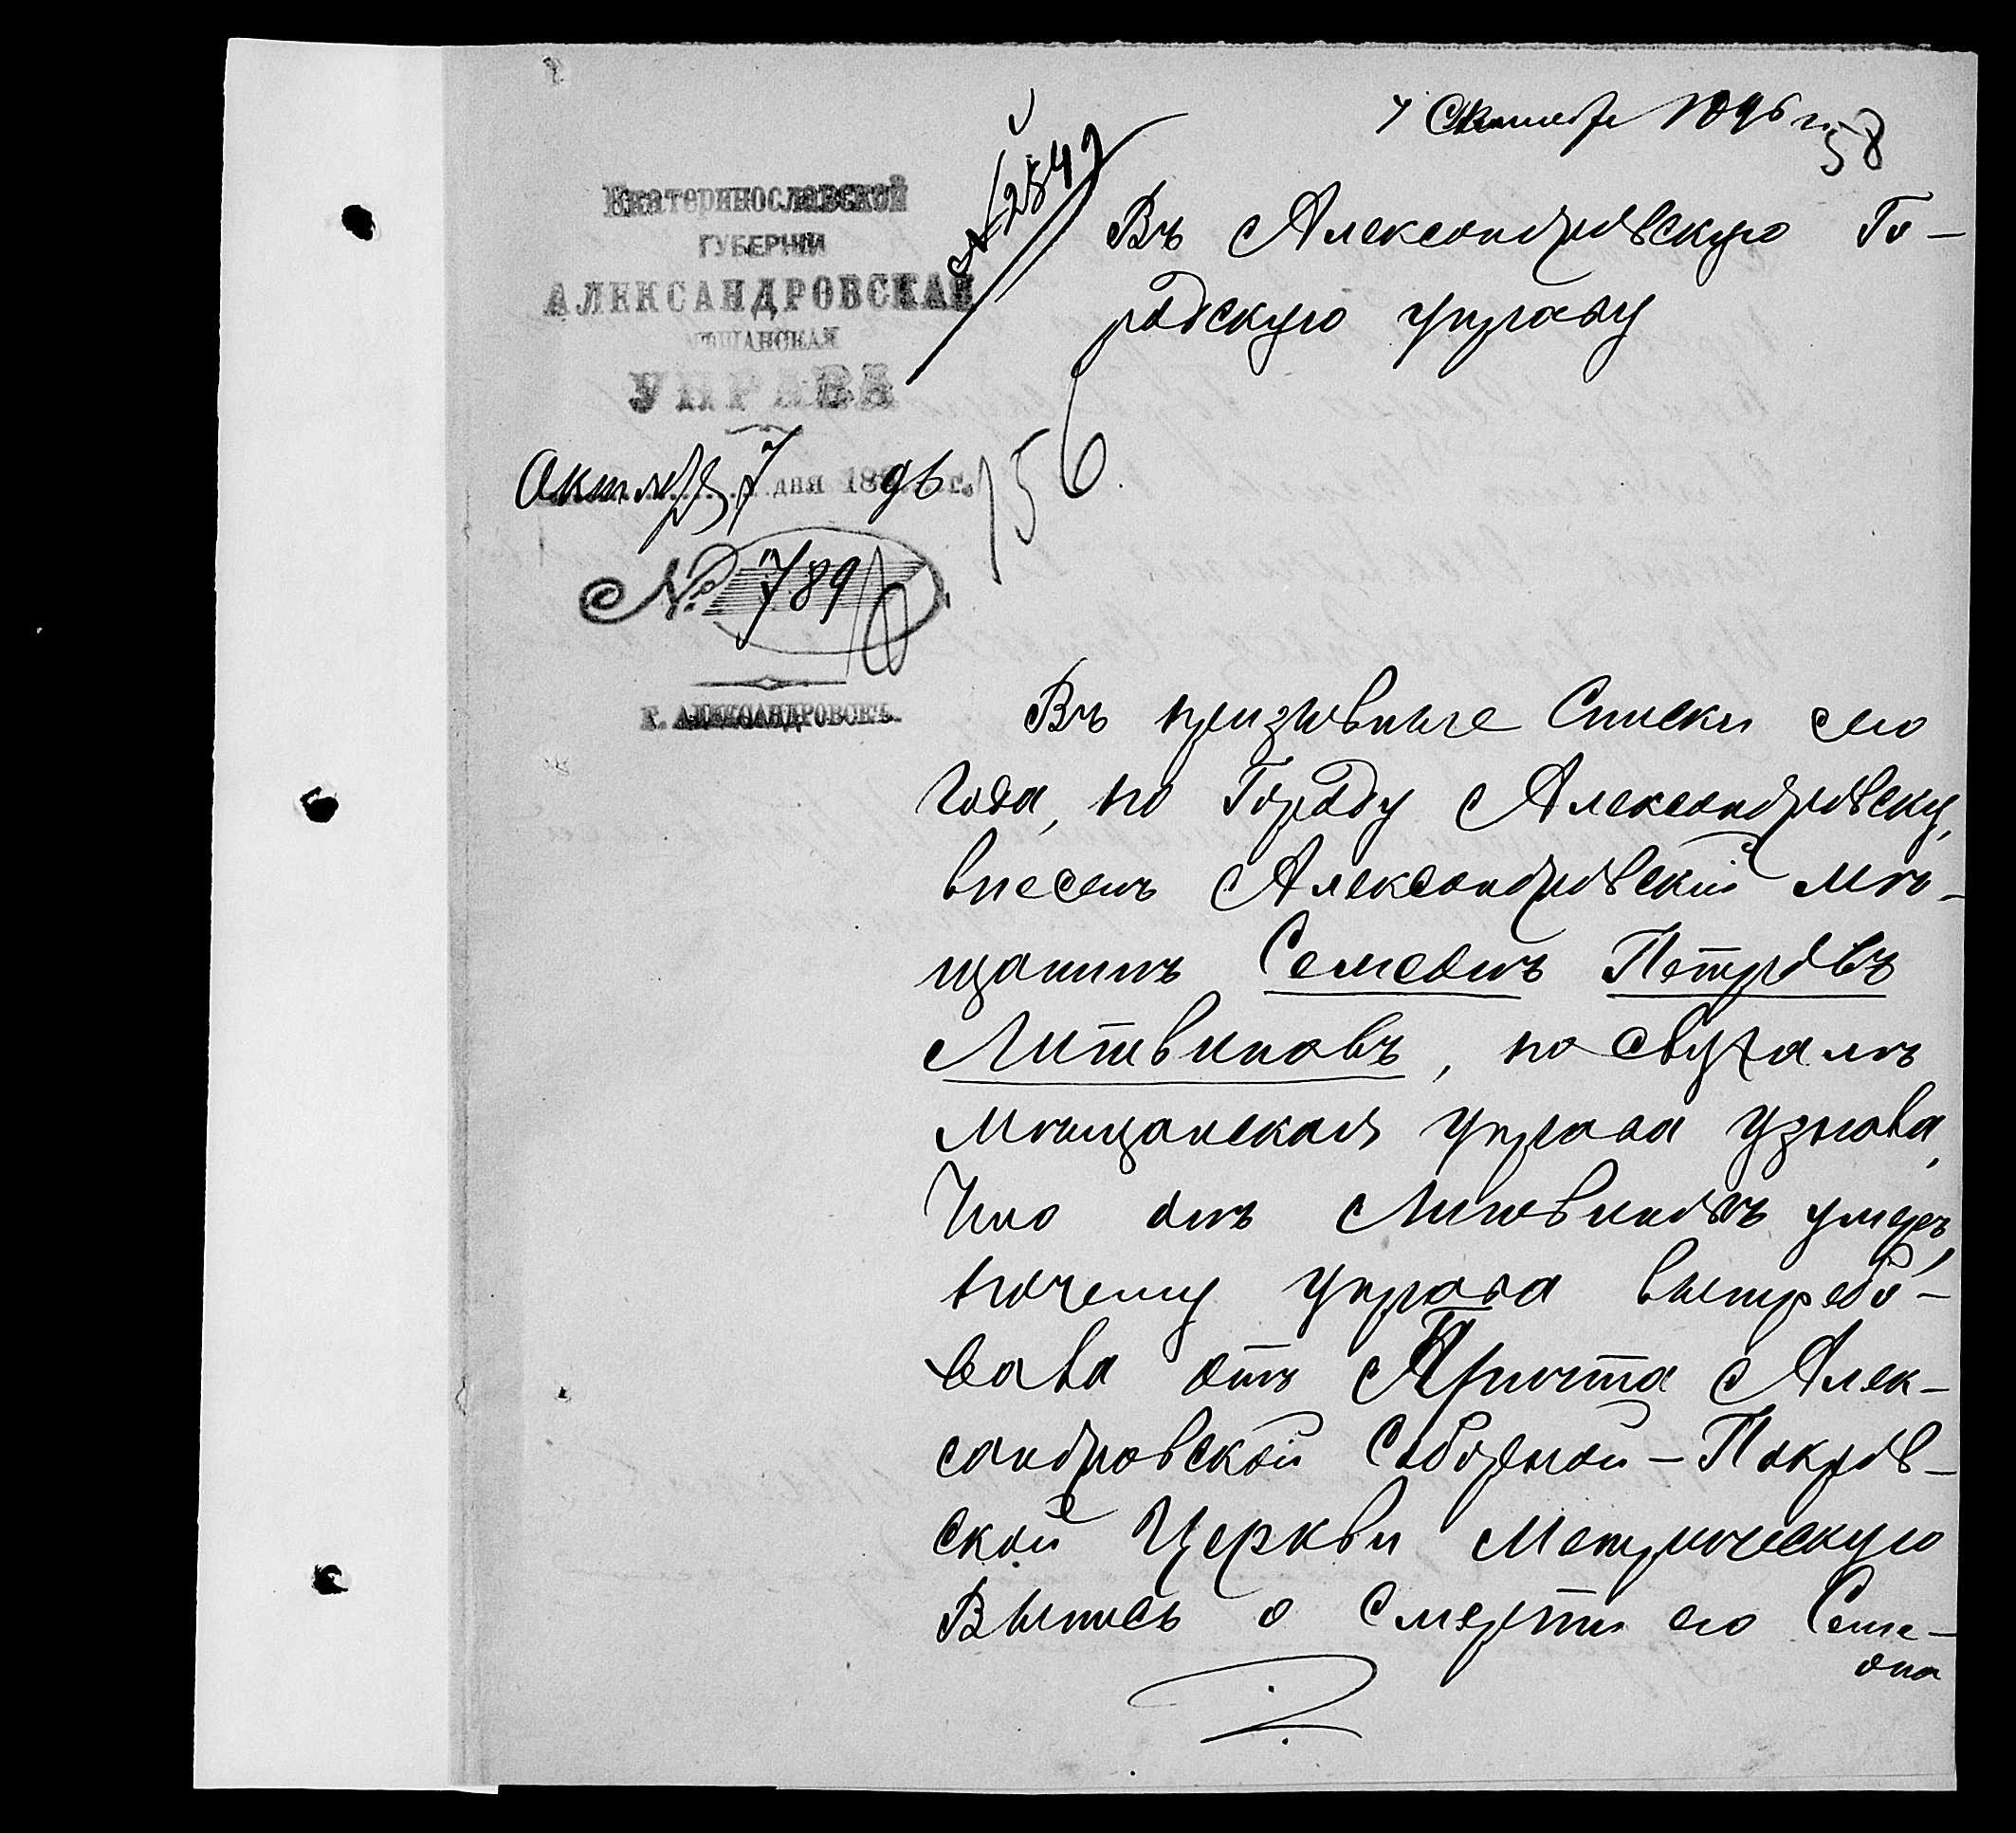 7 Октября 1896 г.
58
№ 2842
Екатеринославской
ГУБЕРНІИ
АЛЕКСАНДРОВСКАЯ
МѢЩАНСКАЯ
УПРАВА
Октября 7 дня 1896 г.
№ 789
г. АЛЕКСАНДРОВСКЪ.
156.
Въ Александровскую Го-
родскую управу
Въ призывные Списки сего
года, по Городу Александровску,
внесенъ Александровскій мѣ-
щанинъ Семеонъ Петровъ
Литвиновъ, но
Мѣщанская управа узнала,
Что онъ Литвиновъ умеръ,
почему управа вытребо-
вала отъ Причта Алек-
сандровской Соборной-Покров-
ской Церкви Метрическую
Выпись о Смерти его Семе-
она